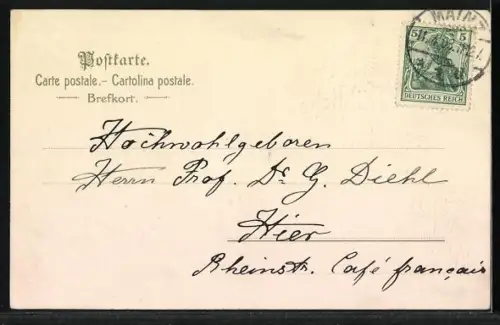 Postkarte.
Carte postale.– Cartolina postale.
Brefkort.
MAINZ
5 5
DEUTSCHES REICH
Hochwohlgeboren
Herrn Prof. Dr G. Diehl
Hier
Rheinstr. Café français